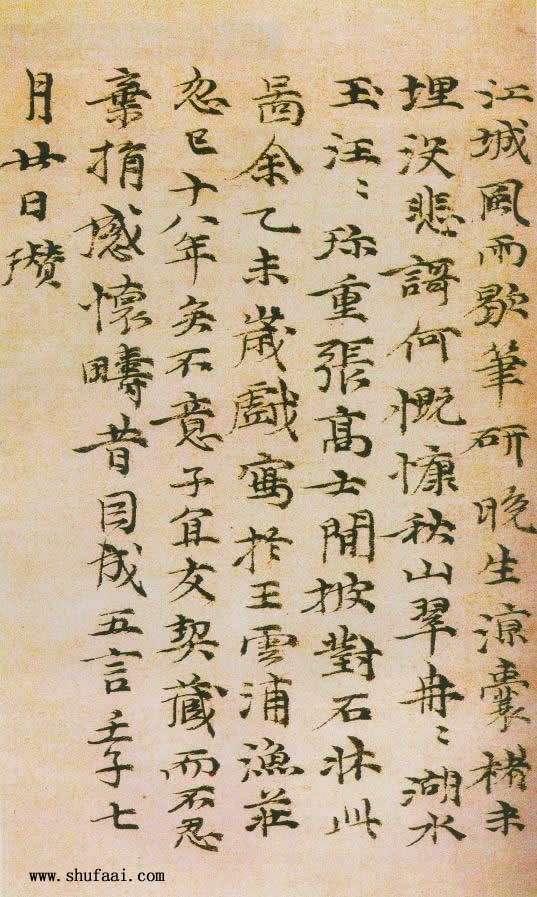 江城風雨歇筆研晚生涼囊楮未
埋沒悲謌何慨慷秋山翠冉〻湖水
玉汪〻珎重張高士閒披對石牀此
啚余乙未歲戲寫於王雲浦漁莊
忽已十八年矣不意子宜友契藏而不忍
棄捐感懷疇昔因成五言壬子七
月廿日瓚
www.shufaai.com